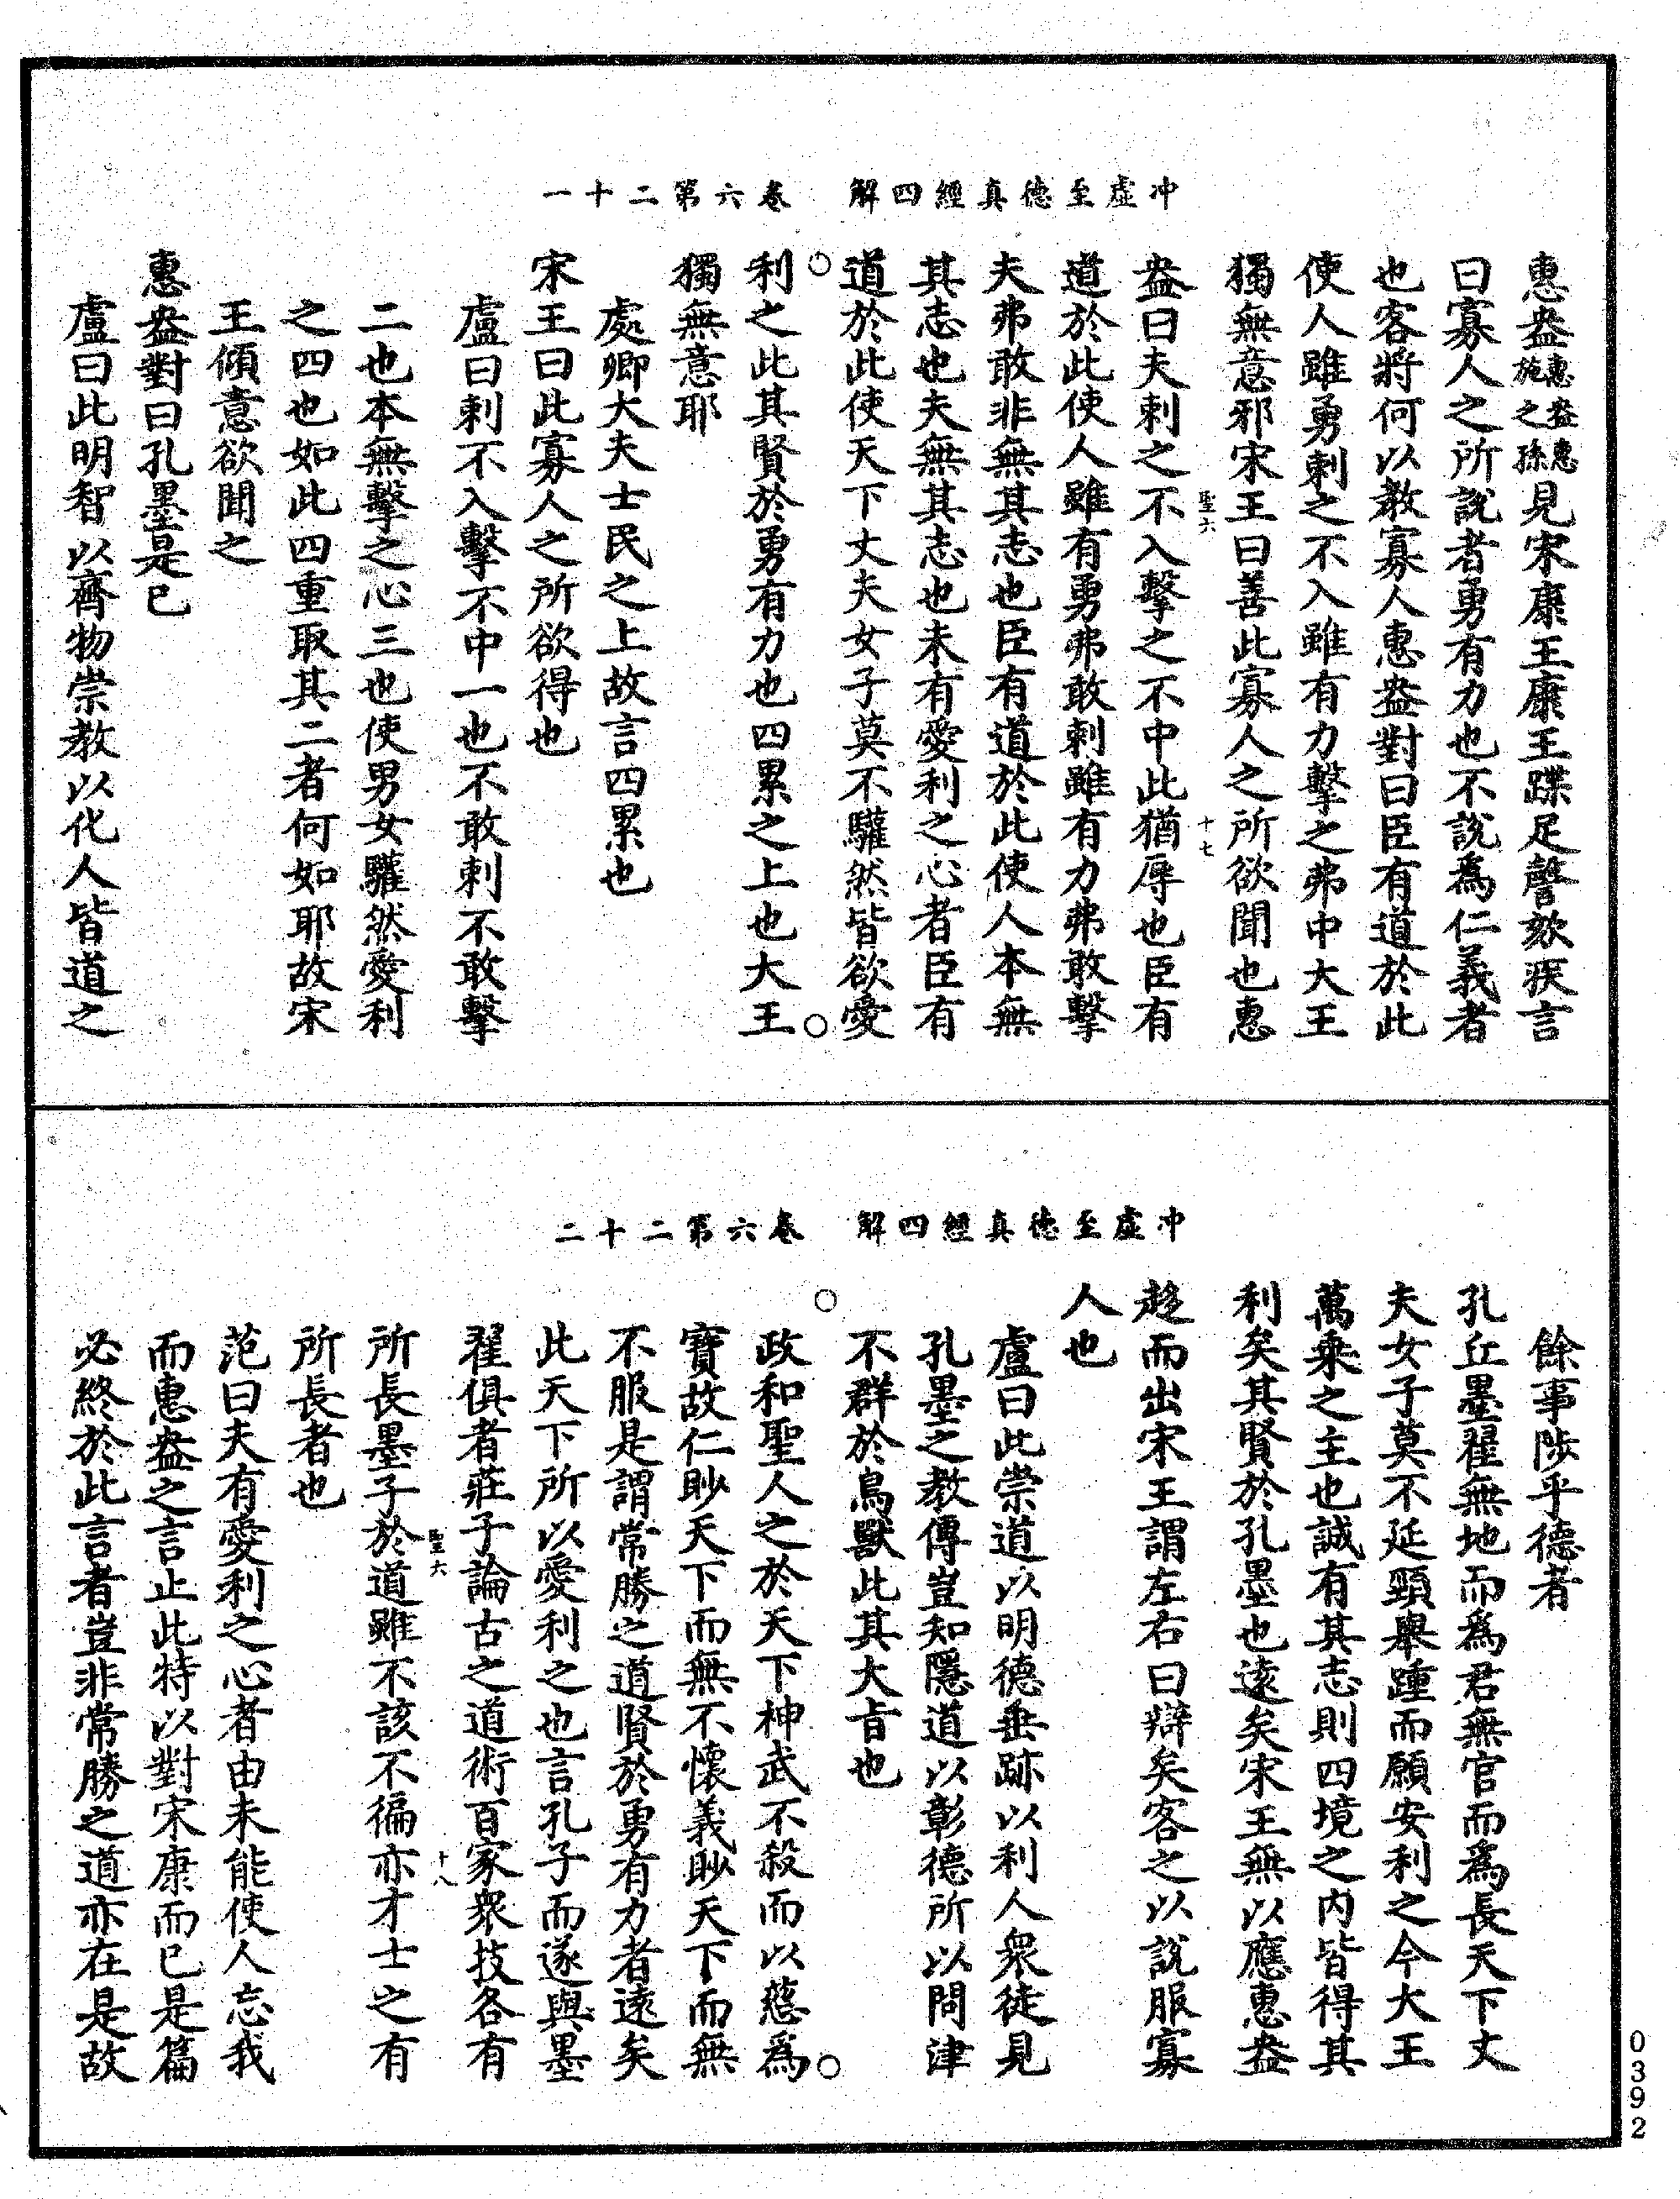 冲虛至德真經四解　卷六第二十一
惠盎惠盎惠施之孫見宋康王康王蹀足謦欬疾言
曰寡人之所說者勇有力也不說為仁義者
也客將何以教寡人惠盎對曰臣有道於此
使人雖勇刺之不入雖有力擊之弗中大王
獨無意邪宋王曰善此寡人之所欲聞也惠
聖六　十七
盎曰夫刺之不入擊之不中此猶辱也臣有
道於此使人雖有勇弗敢刺雖有力弗敢擊
夫弗敢非無其志也臣有道於此使人本無
其志也夫無其志也未有愛利之心者臣有
道於此使天下丈夫女子莫不驩然皆欲愛
利之此其賢於勇有力也四累之上也大王
獨無意耶
處卿大夫士民之上故言四累也
宋王曰此寡人之所欲得也
盧曰刺不入擊不中一也不敢刺不敢擊
二也本無擊之心三也使男女驩然愛利
之四也如此四重取其二者何如耶故宋
王傾意欲聞之
惠盎對曰孔墨是已
盧曰此明智以齊物崇教以化人皆道之
冲虛至德真經四解　卷六第二十二
餘事陟乎德者
孔丘墨翟無地而為君無官而為長天下丈
夫女子莫不延頸舉踵而願安利之今大王
萬乘之主也誠有其志則四境之內皆得其
利矣其賢於孔墨也遠矣宋王無以應惠盎
趍而出宋王謂左右曰辯矣客之以說服寡
人也
盧曰此崇道以明德垂跡以利人衆徒見
孔墨之教傳豈知隱道以彰德所以問津
不群於鳥獸此其大旨也
政和聖人之於天下神武不殺而以慈為
寶故仁眇天下而無不懷義眇天下而無
不服是謂常勝之道賢於勇有力者遠矣
此天下所以愛利之也言孔子而遂與墨
翟俱者莊子論古之道術百家衆技各有
聖六　十八
所長墨子於道雖不該不徧亦才士之有
所長者也
范曰夫有愛利之心者由未能使人忘我
而惠盎之言止此特以對宋康而已是篇
必終於此言者豈非常勝之道亦在是故
0392